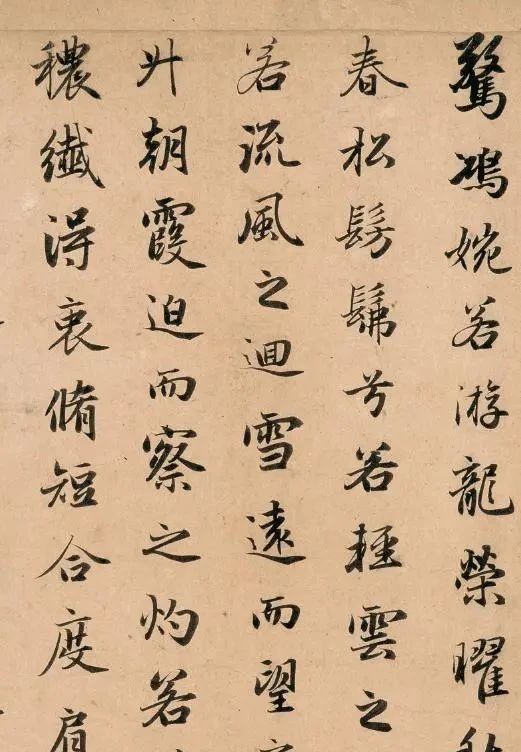 驚鴻婉若游龍榮曜秋
春松髣髴兮若輕雲之
若流風之迴雪遠而望
升朝霞迫而察之灼若
穠纖得衷脩短合度肩